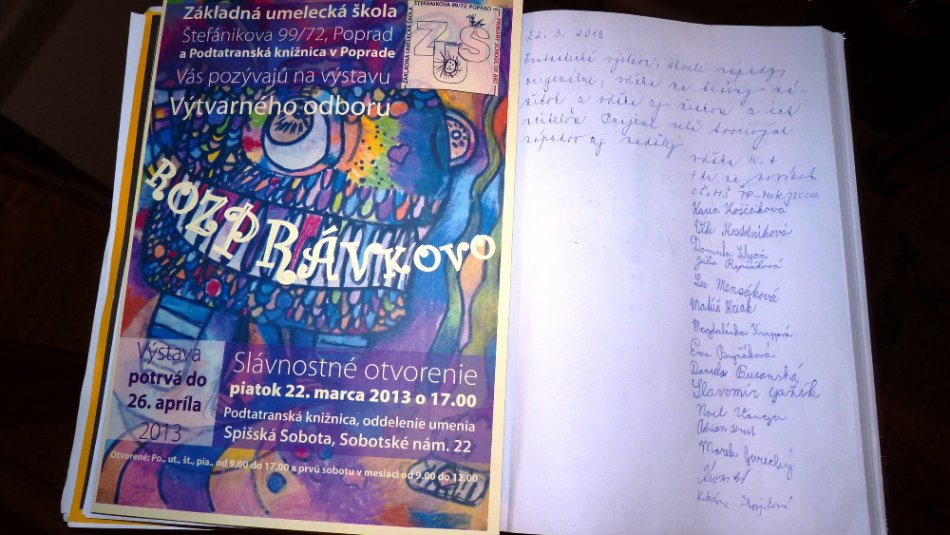 Základná umelecká škola
Štefánikova 99/72, Poprad
a Podtatranská knižnica v Poprade
Vás pozývajú na výstavu
Výtvarného odboru
ŠTEFÁNIKOVA 99/72 POPRAD
ZÁKLADNÁ UMELECKÁ ŠKOLA
ZUŠ
PRIMARY SCHOOL OF ART
ROZPRÁVKOVO
Výstava
potrvá do
26. apríla
2013
Slávnostné otvorenie
piatok 22. marca 2013 o 17.00
Podtatranská knižnica, oddelenie umenia
Spišská Sobota, Sobotské nám. 22
Otvorené: Po., ut., št., pia., od 9.00 do 17.00 a prvú sobotu v mesiaci od 9.00 do 12.00
22. 3. 2013
výstava, skvelé nápady,
originálne, vďaka za krásny zá-
žitok a vďaka aj žiakom a ich
učiteľom. Prajeme veľa tvorivých
nápadov aj naďalej
ZŠ s MŠ PP-Matejovce
Karin Koščáková
Viki Kostelníková
Júlia Repčáková
Lea Mensáková
Matúš
Magdalénka Knappová
Ema
Daniela Buzanská
Slavomír
Noel
Adrián
Marek